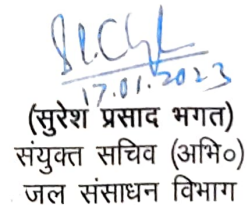 17.01.2023
(सुरेश प्रसाद भगत)
संयुक्त सचिव (अभि०)
जल संसाधन विभाग